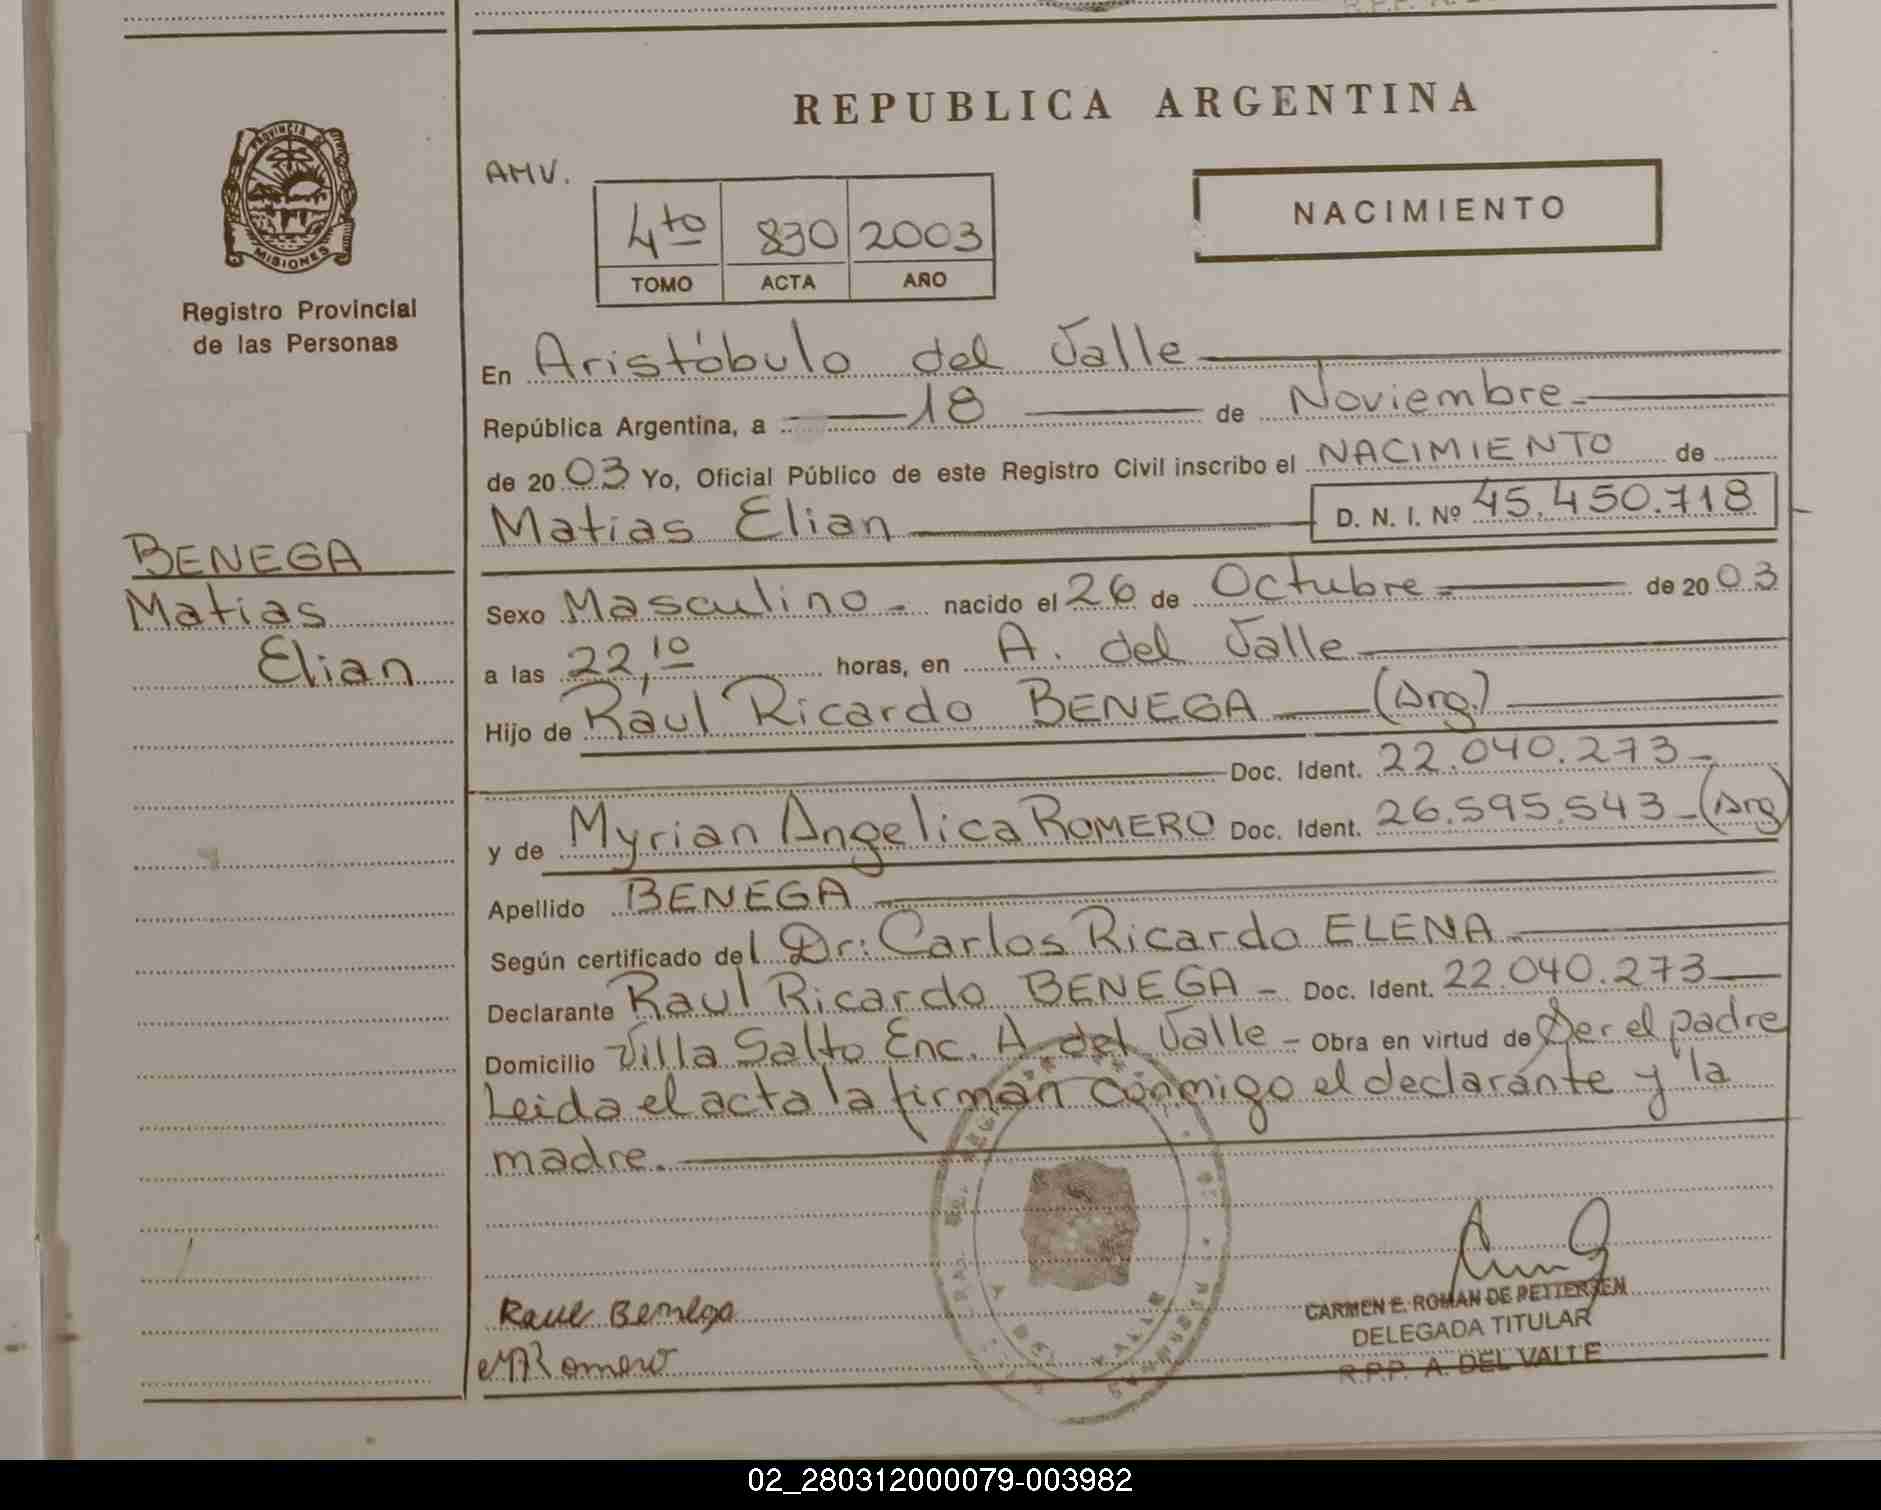 REPUBLICA ARGENTINA
PROVINCIA DE
MISIONES
Registro Provincial
de las Personas
AMV.
4to 830 2003
TOMO ACTA AÑO
NACIMIENTO
En Aristóbulo del Valle
República Argentina, a 18 de Noviembre
de 2003 Yo, Oficial Público de este Registro Civil inscribo el NACIMIENTO de
Matias Elian D. N. I. Nº 45.450.718
BENEGA
Matias
Elian
Sexo Masculino nacido el 26 de Octubre de 2003
a las 22,10 horas, en A. del Valle
Hijo de Raul Ricardo BENEGA (Arg.)
Doc. Ident. 22.040.273
y de Myrian Angelica ROMERO Doc. Ident. 26.595.543 (Arg)
Apellido BENEGA
Según certificado del Dr: Carlos Ricardo ELENA
Declarante Raul Ricardo BENEGA - Doc. Ident. 22.040.273
Domicilio Villa Salto Enc. A. del Valle - Obra en virtud de Ser el padre
Leida el acta la firman conmigo el declarante y la
madre.
Raul Benega
MARomero
CARMEN E. ROMAN DE PETTERSEN
DELEGADA TITULAR
R.P.P. A. DEL VALLE
02_280312000079-003982